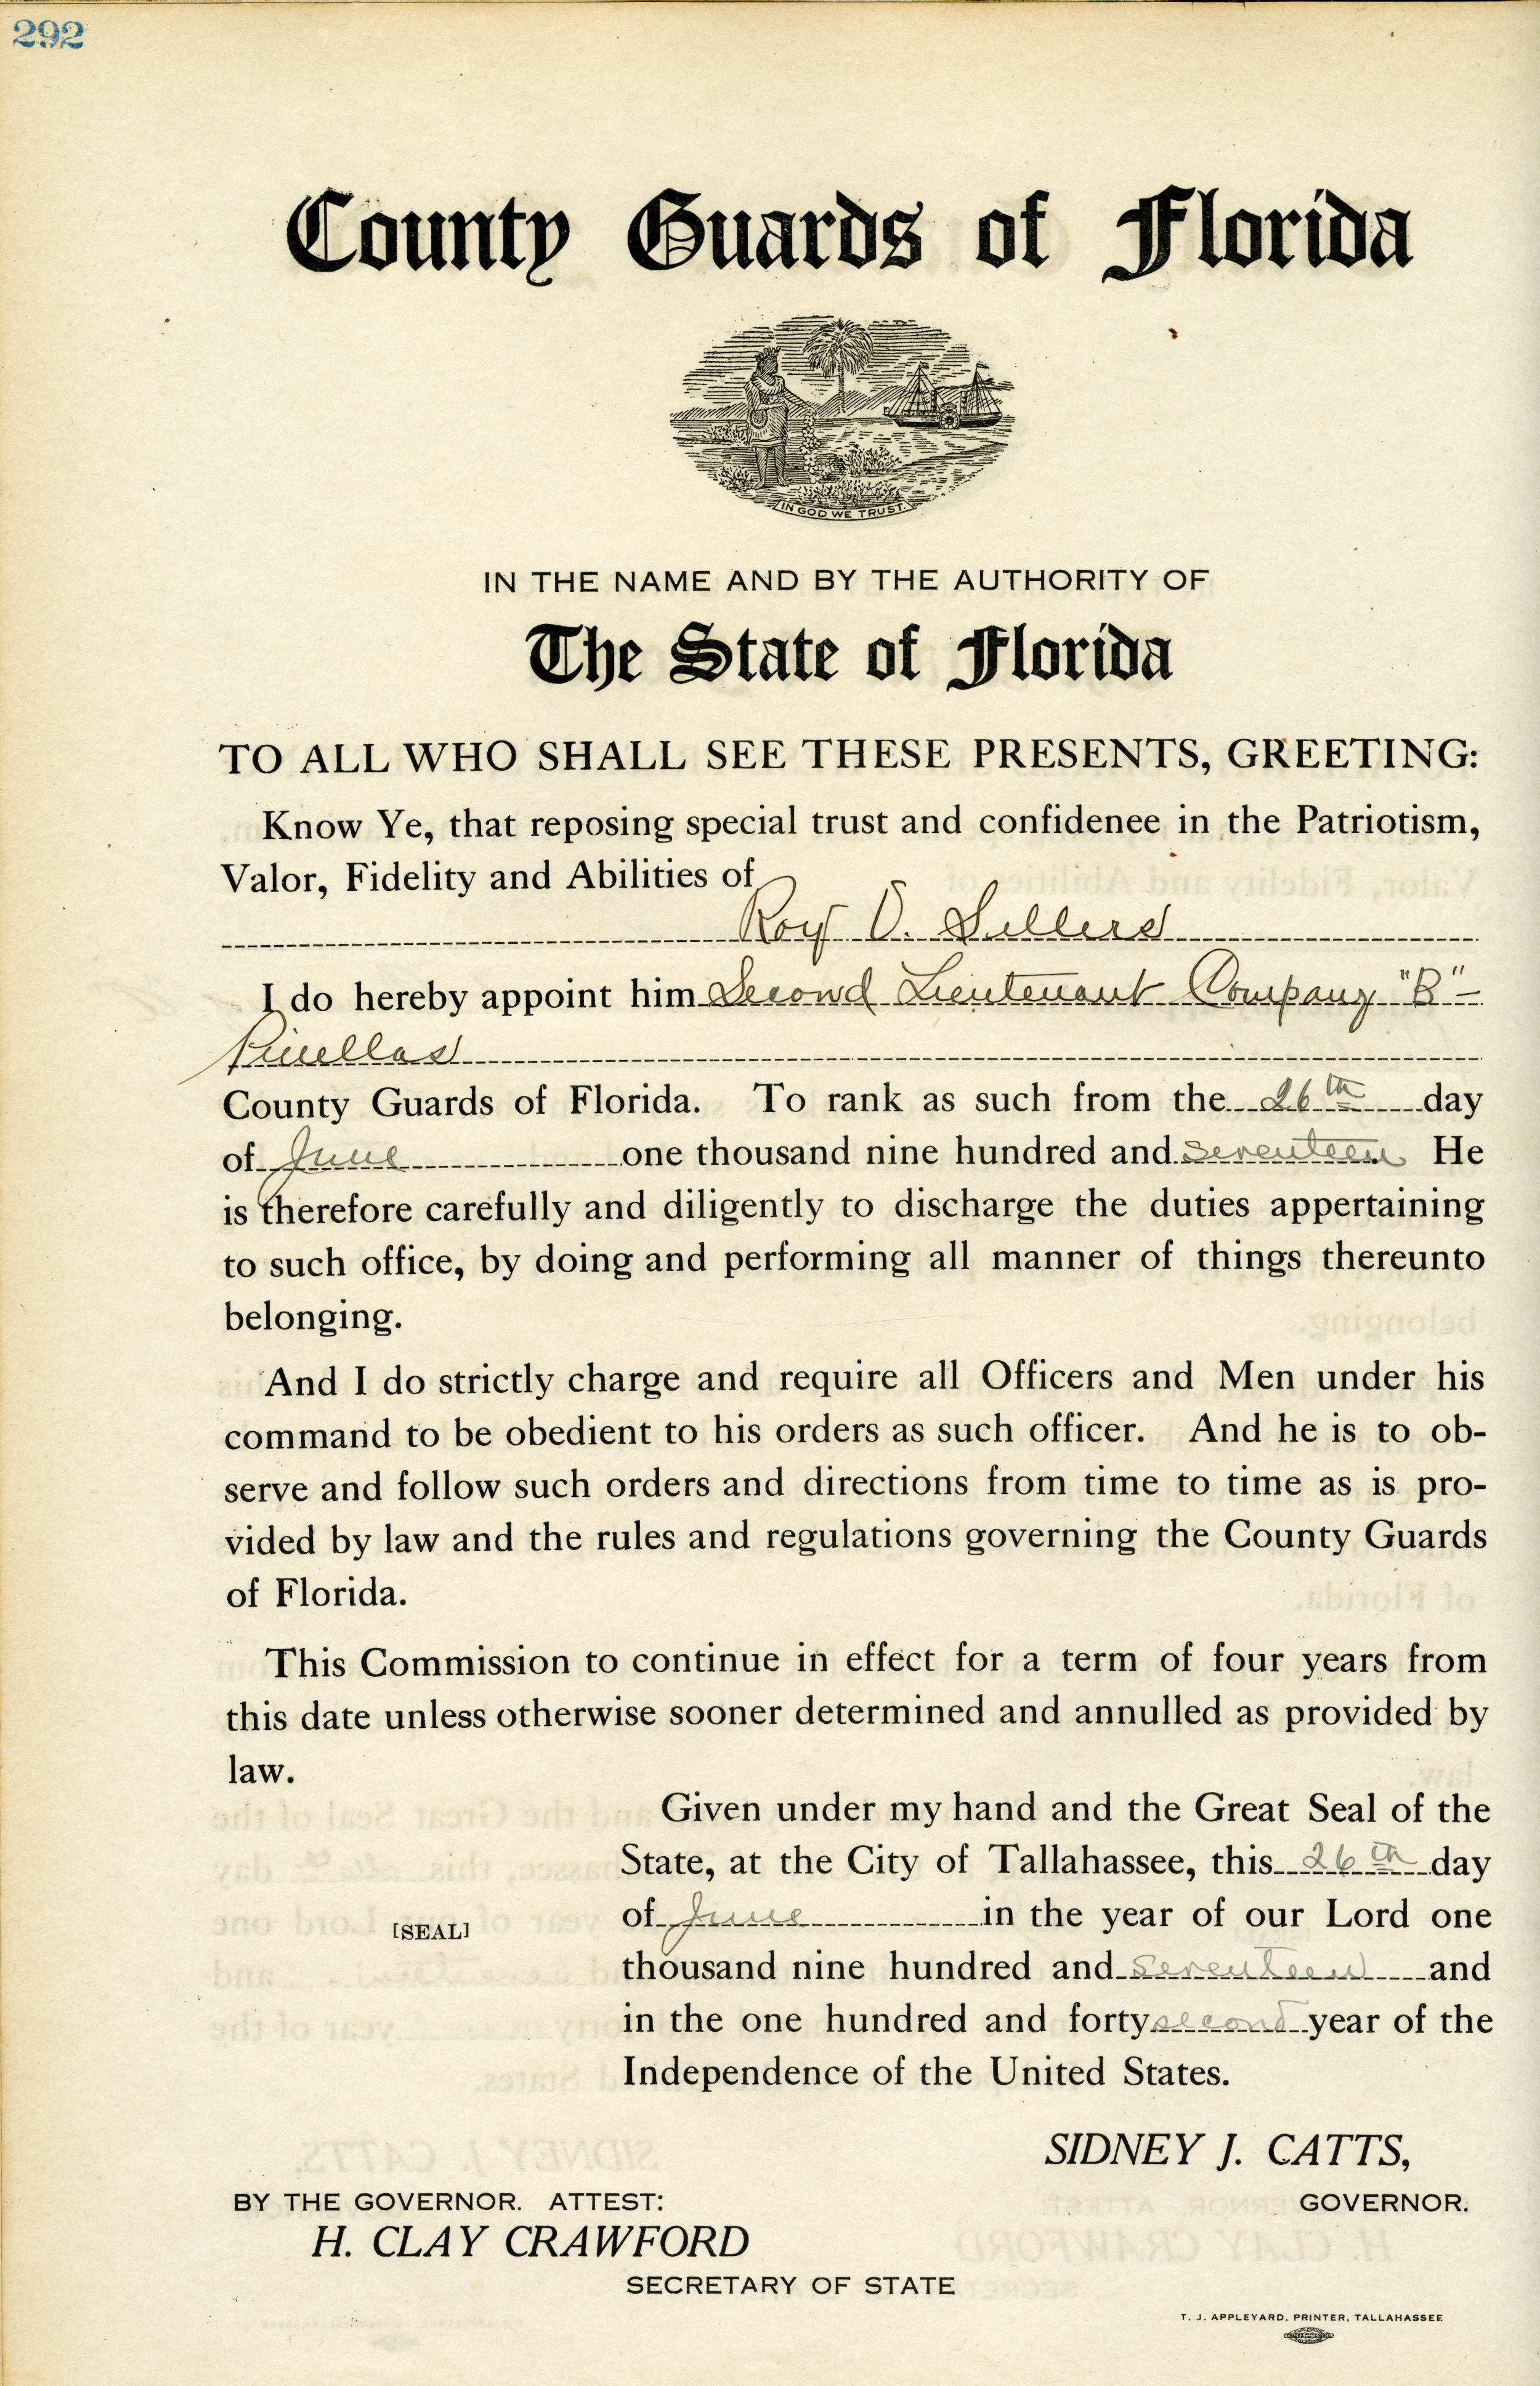 292
County Guards of Florida
IN GOD WE TRUST.
IN THE NAME AND BY THE AUTHORITY OF
The State of Florida
TO ALL WHO SHALL SEE THESE PRESENTS, GREETING:
Know Ye, that reposing special trust and confidenee in the Patriotism,
Valor, Fidelity and Abilities of
Roy D. Sellers
I do hereby appoint him Second Lieutenant Company "B"-
Pinellas
County Guards of Florida. To rank as such from the 26th day
of June one thousand nine hundred and seventeen He
is therefore carefully and diligently to discharge the duties appertaining
to such office, by doing and performing all manner of things thereunto
belonging.
And I do strictly charge and require all Officers and Men under his
command to be obedient to his orders as such officer. And he is to ob-
serve and follow such orders and directions from time to time as is pro-
vided by law and the rules and regulations governing the County Guards
of Florida.
This Commission to continue in effect for a term of four years from
this date unless otherwise sooner determined and annulled as provided by
law.
Given under my hand and the Great Seal of the
State, at the City of Tallahassee, this 26th day
of June in the year of our Lord one
[SEAL]
thousand nine hundred and seventeen and
in the one hundred and forty second year of the
Independence of the United States.
SIDNEY J. CATTS,
BY THE GOVERNOR. ATTEST:
GOVERNOR.
H. CLAY CRAWFORD
SECRETARY OF STATE
T. J. APPLEYARD, PRINTER, TALLAHASSEE